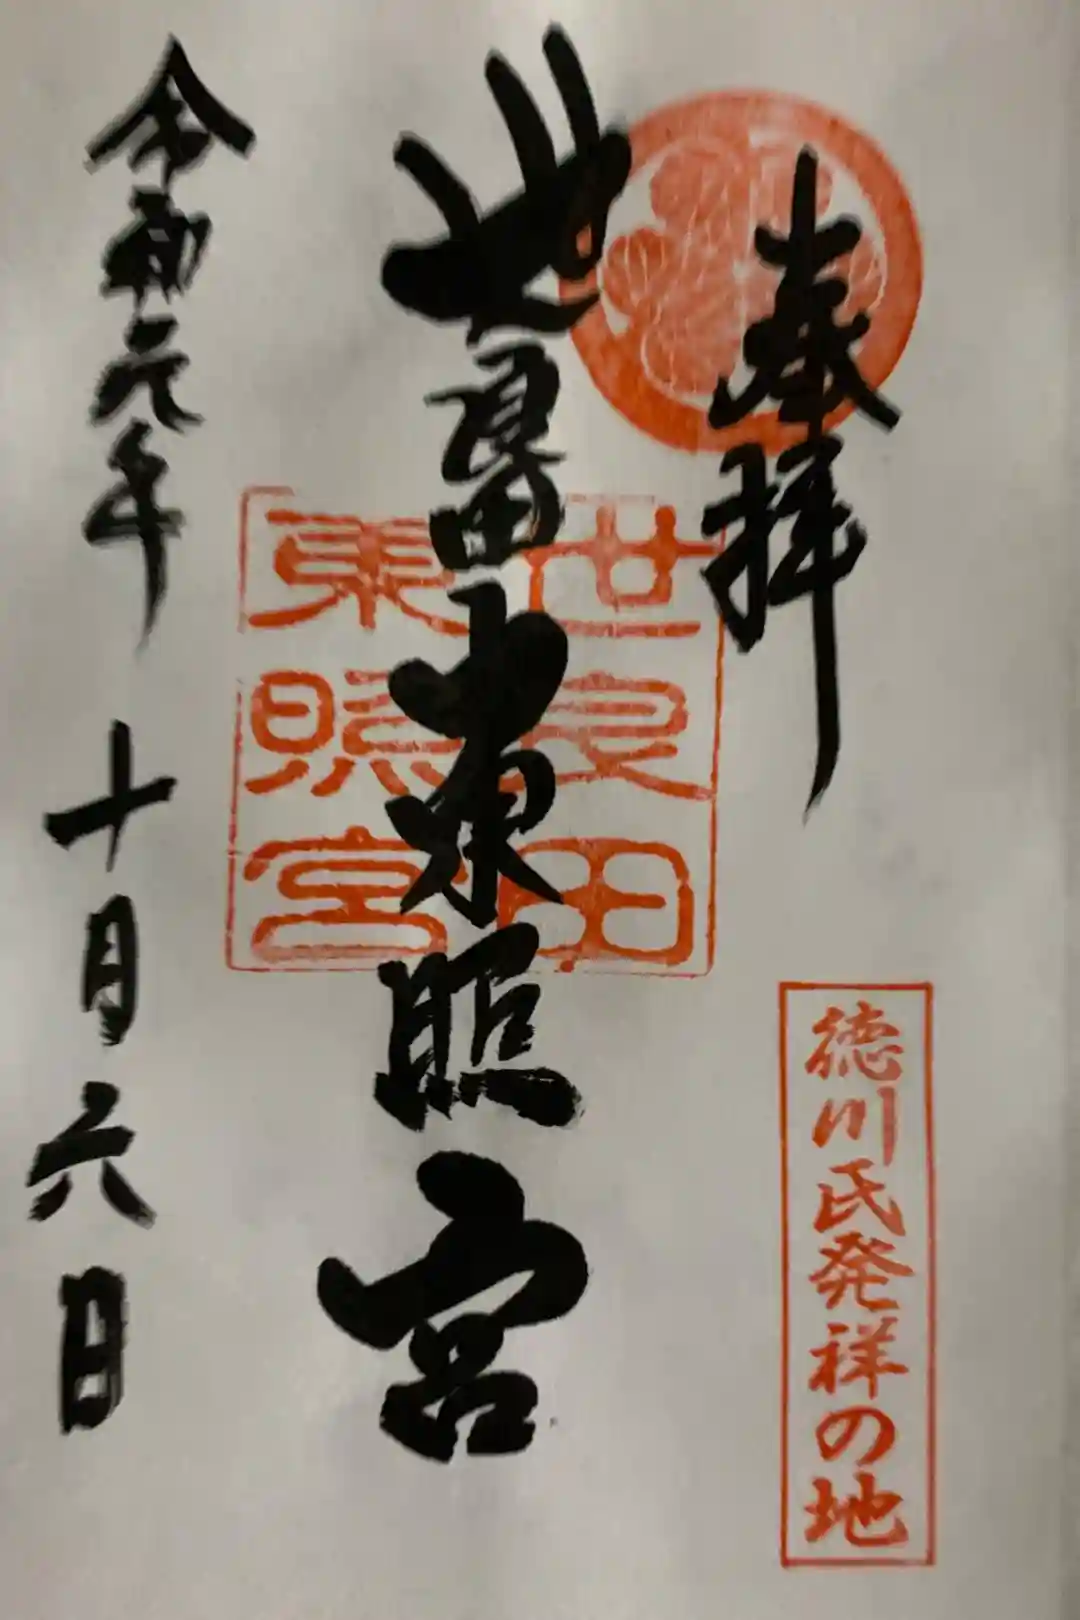 奉拝
徳川氏発祥の地
世良田東照宮
世良田
東照宮
令和元年 十月六日